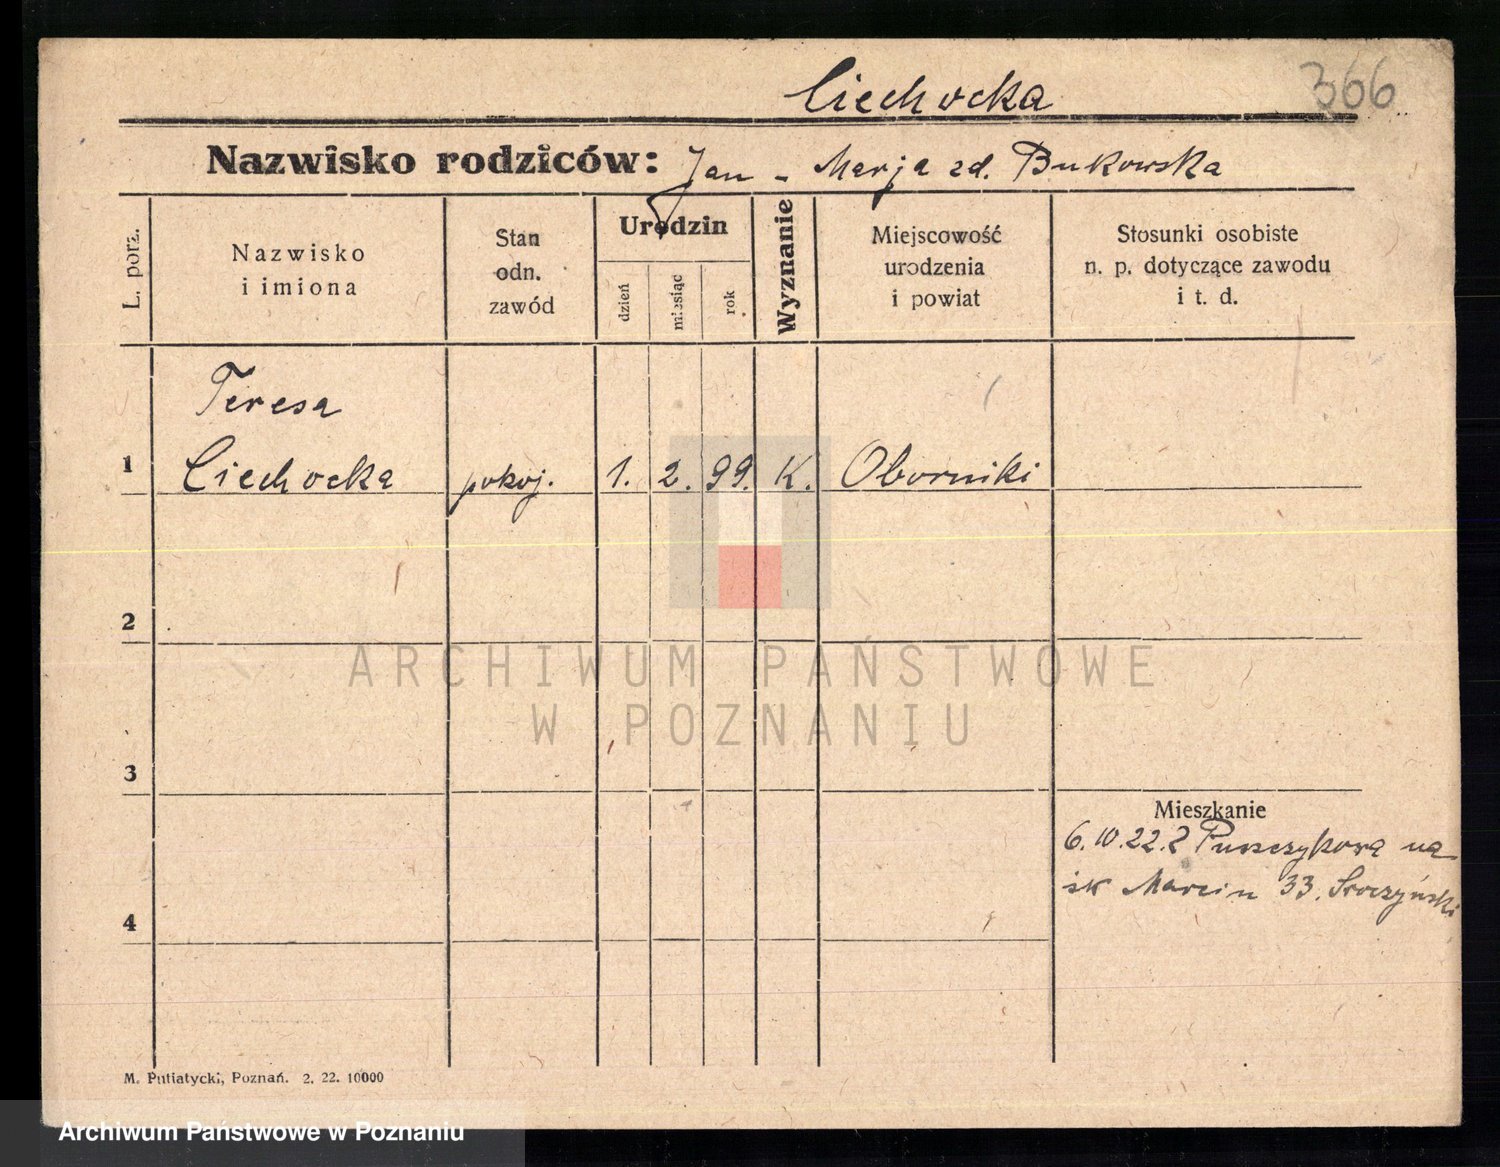 Ciechocka 366
Nazwisko rodziców: Jan - Marja zd. Bukowska
L. porz.
Nazwisko
i imiona
Stan
odn.
zawód
Urodzin
dzień
miesiąc
rok
Wyznanie
Miejscowość
urodzenia
i powiat
Stosunki osobiste
n. p. dotyczące zawodu
i t. d.
Teresa
1 Ciechocka pokoj. 1. 2. 99. K. Oborniki
2
ARCHIWUM PAŃSTWOWE
W POZNANIU
3
Mieszkanie
6.10.22. z Puszczykowa na
św Marcin 33. Sroczyński
4
M. Putiatycki, Poznań. 2. 22. 10000
Archiwum Państwowe w Poznaniu